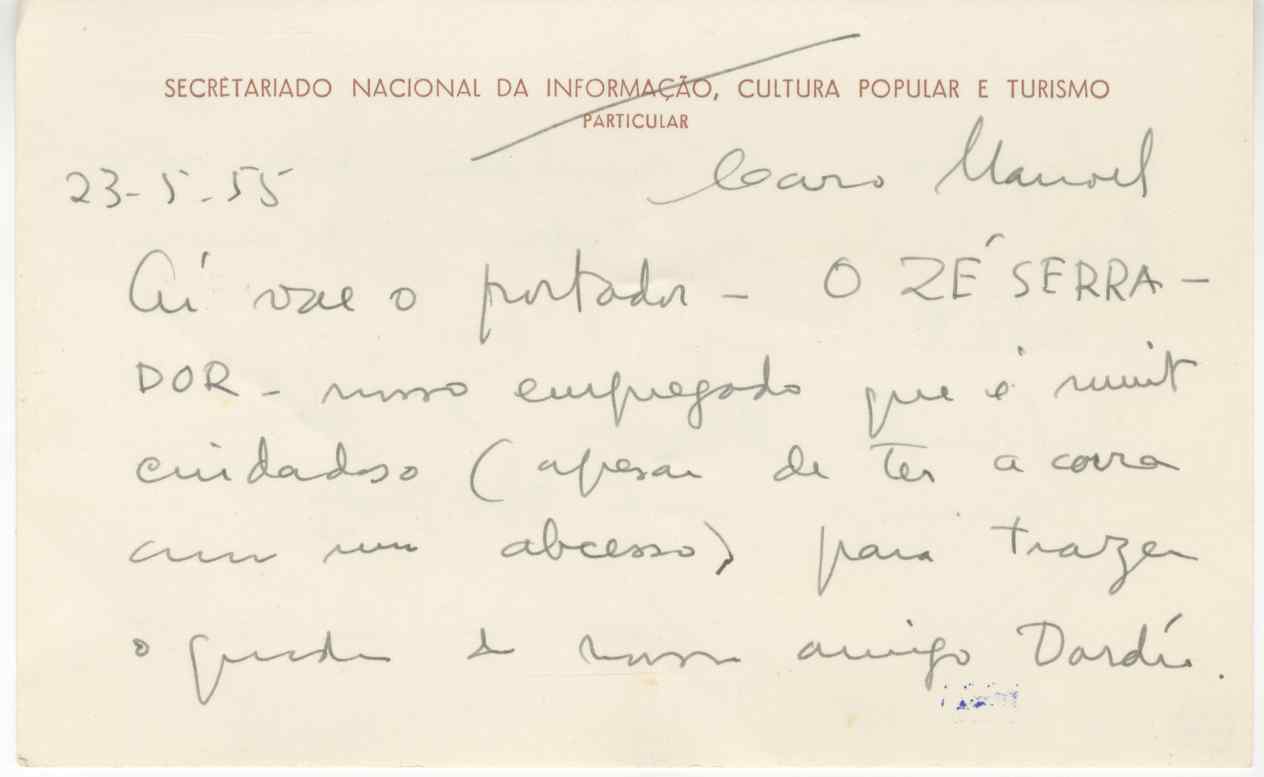 SECRETARIADO NACIONAL DA INFORMAÇÃO, CULTURA POPULAR E TURISMO
PARTICULAR
23-5-55
Caro Manoel
Aí vae o portador - O ZÉ SERRA-
DOR - nosso empregado que é muito
cuidadoso (apesar de ter a cara
com um abcesso) para trazer
o quadro do nosso amigo Dordio.